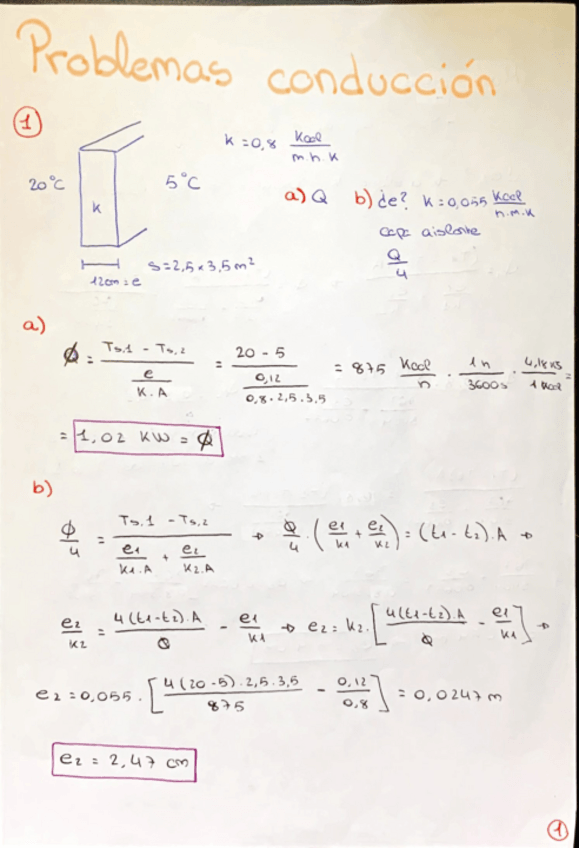 Problemas conducción
①
k = 0,8 Kcal / m h K
20°C
5°C
K
12cm = e
S = 2,5 x 3,5 m²
a) Q
b) ¿e? k = 0,055 Kcal / h.m.K
capa aislante
Q / 4
a)
Φ = (Ts,1 - Ts,2) / (e / K.A) = (20 - 5) / (0,12 / 0,8 . 2,5 . 3,5) = 875 Kcal / h . 1h / 3600s . 4,18 KJ / 1 Kcal =
= 1,02 KW = Φ
b)
Φ / 4 = (Ts,1 - Ts,2) / (e1 / K1.A + e2 / K2.A) → Φ / 4 . (e1 / K1 + e2 / K2) = (t1 - t2).A →
e2 / K2 = 4(t1-t2).A / Φ - e1 / K1 → e2 = K2. [4(t1-t2).A / Φ - e1 / K1] →
e2 = 0,055 . [4(20-5).2,5.3,5 / 875 - 0,12 / 0,8] = 0,0247 m
e2 = 2,47 cm
①